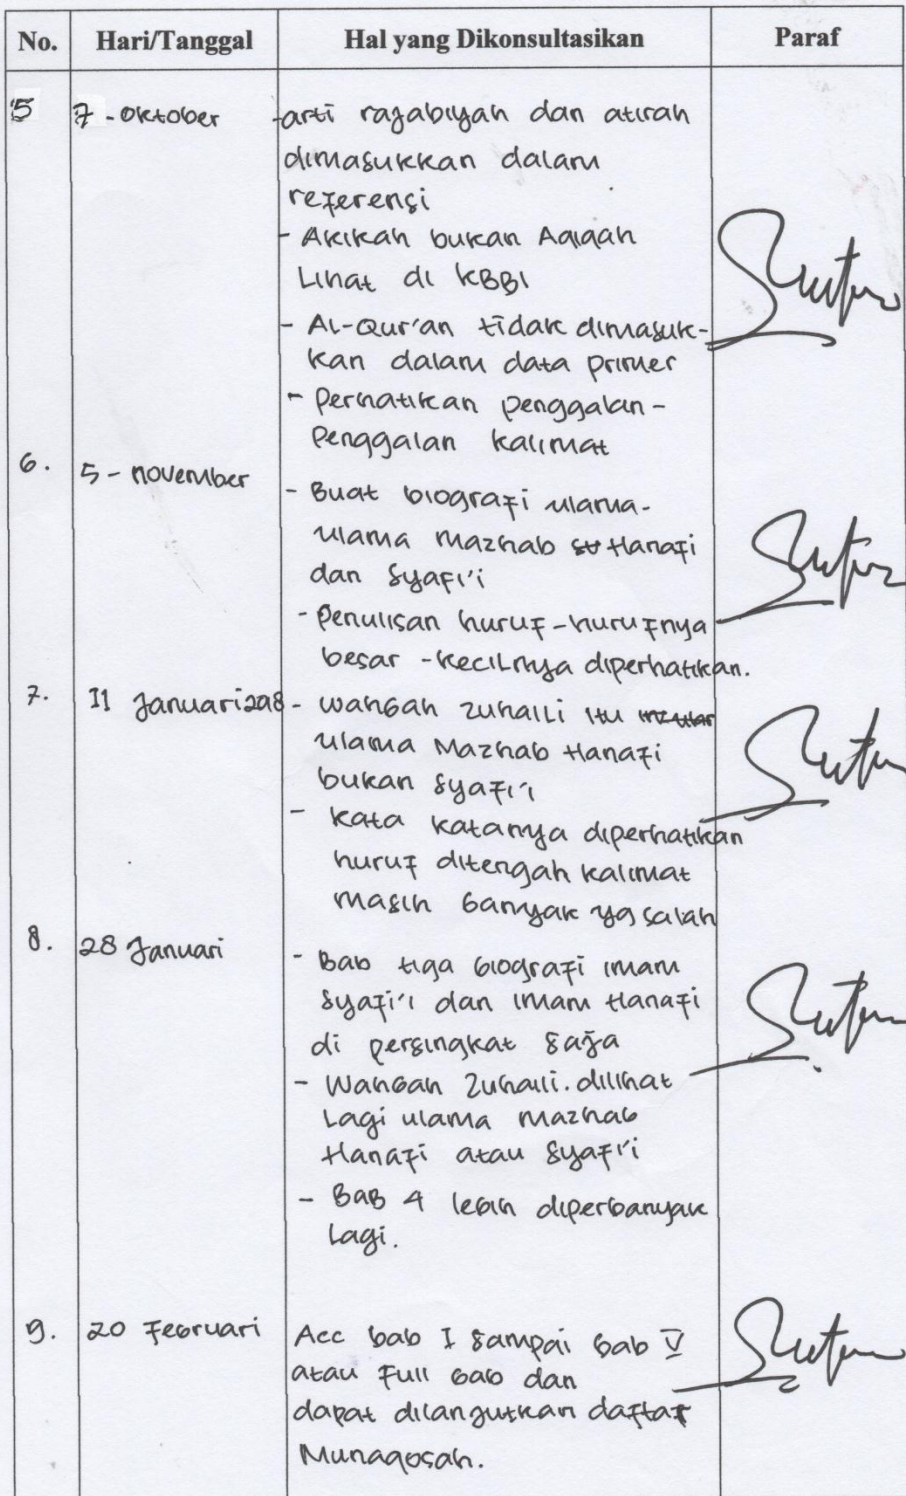 No. Hari/Tanggal Hal yang Dikonsultasikan Paraf
5 7 - Oktober -arti rajabiyah dan atirah
dimasukkan dalam
referensi
- Akikah bukan Aqiqah
Lihat di KBBI
- Al-Qur'an tidak dimasuk-
kan dalam data primer
- Perhatikan penggalan-
Penggalan kalimat
6. 5 - november
- Buat biografi ulama-
ulama mazhab Hanafi
dan Syafi'i
- Penulisan huruf-hurufnya
besar -kecilnya diperhatikan.
7. 11 Januari 208 - Wahbah Zuhaili itu
ulama Mazhab Hanafi
bukan Syafi'i
- kata katanya diperhatikan
huruf ditengah kalimat
masih banyak yg salah
8. 28 Januari
- Bab tiga biografi imam
Syafi'i dan imam Hanafi
di persingkat saja
- Wahbah Zuhaili. dilihat
Lagi ulama mazhab
Hanafi atau Syafi'i
- BAB 4 lebih diperbanyak
Lagi.
9. 20 Februari Acc bab I sampai bab V
atau Full bab dan
dapat dilanjutkan daftar
Munaqosah.